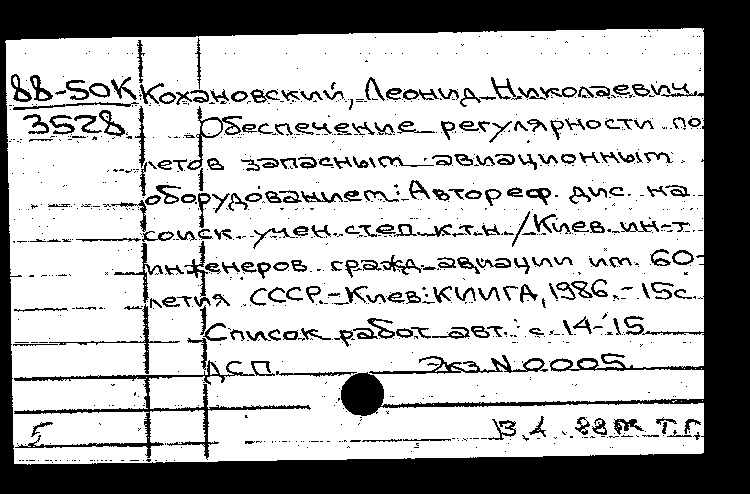 88-50К Кохановский, Леонид Николаевич.
3528 Обеспечение регулярности по
летов запасным авиационным
оборудованием: Автореф. дис. на
соиск. учен. степ. к.т.н. / Киев. ин-т
инженеров гражд. авиации им. 60-
летия СССР.-Киев: КИИГА, 1986.-15с.
Список работ авт.: с. 14-15.
ДСП. Экз. N 0005.
5 88 Т.Г.